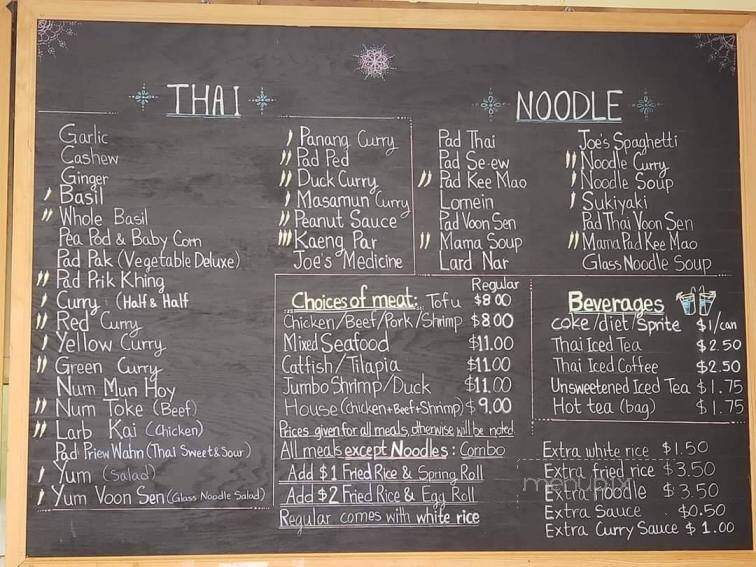 THAI
Garlic
Cashew
Ginger
Basil
Whole Basil
Pea Pod & Baby Corn
Pad Pak (Vegetable Deluxe)
Pad Prik Khing
Curry (Half & Half
Red Curry
Yellow Curry
Green Curry
Num Mun Hoy
Num Toke (Beef)
Larb Kai (Chicken)
Pad Priew Wahn (Thai Sweet & Sour)
Yum (Salad)
Yum Voon Sen (Glass Noodle Salad)
Panang Curry
Pad Ped
Duck Curry
Masamun Curry
Peanut Sauce
Kaeng Par
Joe's Medicine
NOODLE
Pad Thai
Pad Se-ew
Pad Kee Mao
Lomein
Pad Voon Sen
Mama Soup
Lard Nar
Joe's Spaghetti
Noodle Curry
Noodle Soup
Sukiyaki
Pad Thai Voon Sen
Mama Pad Kee Mao
Glass Noodle Soup
Regular
Choices of meat: Tofu $8.00
Chicken/Beef/Pork/Shrimp $8.00
Mixed Seafood $11.00
Catfish/Tilapia $11.00
Jumbo Shrimp/Duck $11.00
House (Chicken+Beef+Shrimp) $9.00
Prices given for all meals, otherwise will be noted
All meals except Noodles: Combo
Add $1 Fried Rice & Spring Roll
Add $2 Fried Rice & Egg Roll
Regular comes with white rice
Beverages
coke/diet/Sprite $1/can
Thai Iced Tea $2.50
Thai Iced Coffee $2.50
Unsweetened Iced Tea $1.75
Hot tea (bag) $1.75
Extra white rice $1.50
Extra fried rice $3.50
Extra noodle $3.50
Extra Sauce $0.50
Extra Curry Sauce $1.00
menupix